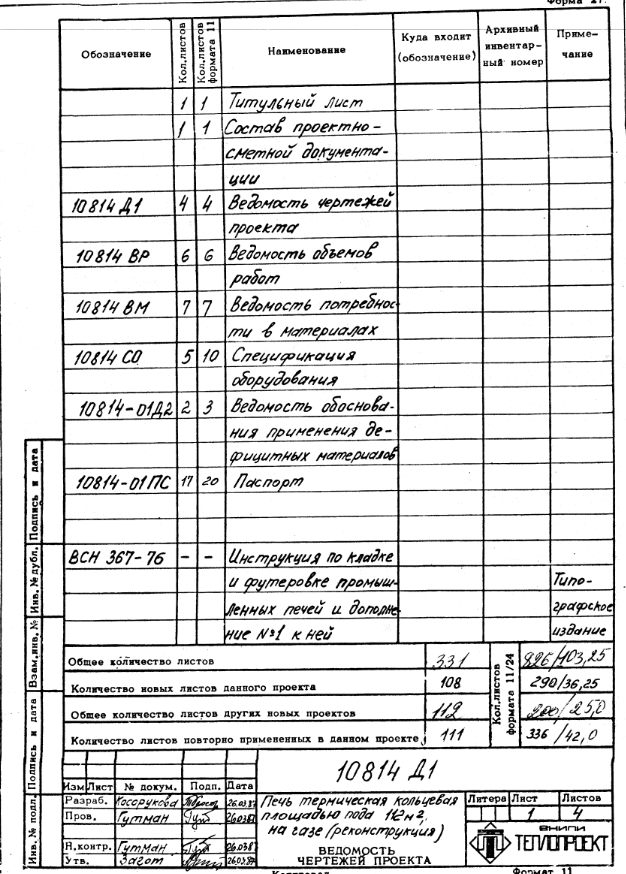 Форма 27.
Обозначение Кол.листов Кол.листов формата 11 Наименование Куда входит (обозначение) Архивный инвентарный номер Примечание
1 1 Титульный лист
1 1 Состав проектно-
сметной документа-
ции
10814 Д1 4 4 Ведомость чертежей
проекта
10814 ВР 6 6 Ведомость объемов
работ
10814 ВМ 7 7 Ведомость потребнос
ти в материалах
10814 СО 5 10 Спецификация
оборудования
10814-01Д2 2 3 Ведомость обоснова-
ния применения де-
фицитных материалов
10814-01ПС 17 20 Паспорт
ВСН 367-76 - - Инструкция по кладке
и футеровке промыш- Типо-
ленных печей и дополне графское
ние №1 к ней издание
Общее количество листов 331 826/103,25
Количество новых листов данного проекта 108 290/36,25
Общее количество листов других новых проектов 112 200/25,0
Количество листов повторно примененных в данном проекте 111 336/42,0
Кол.листов формата 11/24
10814 Д1
Изм Лист № докум. Подп. Дата
Разраб. Косорукова 26.03.87
Пров. Гутман 26.03.87
Н.контр. Гутман 26.03.87
Утв. 26.03.87
Печь термическая кольцевая
площадью пода 112 м2,
на газе (реконструкция)
ВЕДОМОСТЬ
ЧЕРТЕЖЕЙ ПРОЕКТА
Литера Лист Листов
1 4
ВНИПИ
ТЕПЛОПРОЕКТ
Копировал Формат 11
Инв. № подл. Подпись и дата Взам.инв. № Инв. № дубл. Подпись и дата